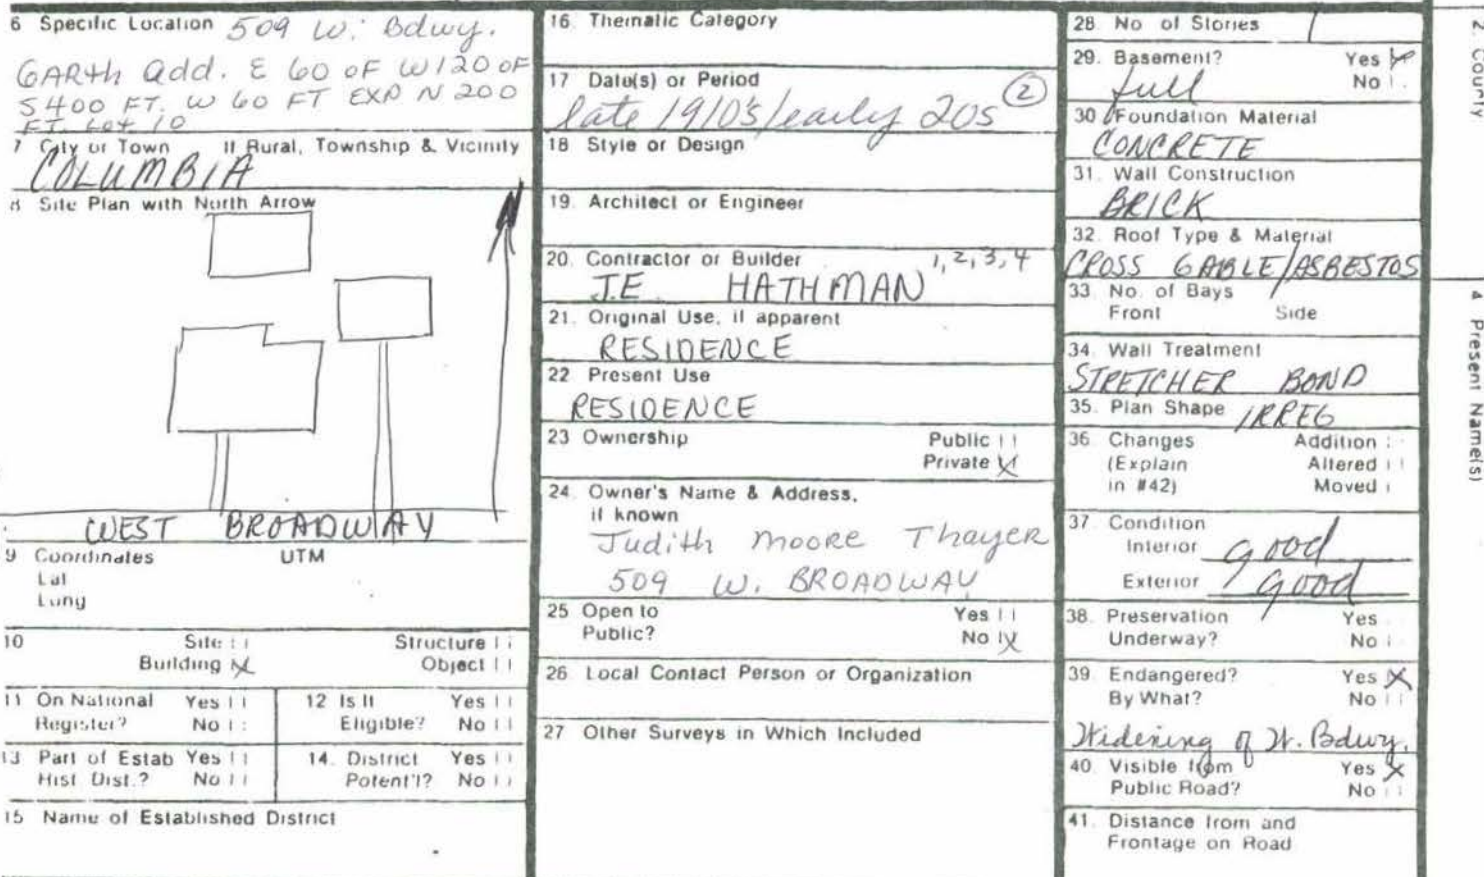 6 Specific Location 509 W. Bdwy.
GARth add. E 60 OF W120 OF
S400 FT. W 60 FT EXP N 200
FT. Lot 10
7 City or Town If Rural, Township & Vicinity
COLUMBIA
8 Site Plan with North Arrow
WEST BROADWAY
9 Coordinates UTM
Lat
Long
10 Site Structure
Building X Object
11 On National Register? Yes No
12 Is It Eligible? Yes No
13 Part of Estab Hist Dist.? Yes No
14. District Potent'l? Yes No
15 Name of Established District
16. Thematic Category
17 Date(s) or Period
late 1910's/early 20s (2)
18 Style or Design
19. Architect or Engineer
20. Contractor or Builder 1, 2, 3, 4
J.E. HATHMAN
21. Original Use, if apparent
RESIDENCE
22 Present Use
RESIDENCE
23 Ownership Public
Private X
24. Owner's Name & Address,
if known
Judith Moore Thayer
509 W. BROADWAY
25 Open to Yes
Public? No X
26. Local Contact Person or Organization
27 Other Surveys in Which Included
28. No of Stories
29. Basement? Yes X
full No
30 Foundation Material
CONCRETE
31. Wall Construction
BRICK
32. Roof Type & Material
CROSS GABLE/ASBESTOS
33. No. of Bays
Front Side
34. Wall Treatment
STRETCHER BOND
35. Plan Shape IRREG
36. Changes Addition
(Explain Altered
in #42) Moved
37. Condition
Interior good
Exterior good
38. Preservation Yes
Underway? No
39. Endangered? Yes X
By What? No
Widening of W. Bdwy.
40. Visible from Yes X
Public Road? No
41. Distance from and
Frontage on Road
2. County
4 Present Name(s)